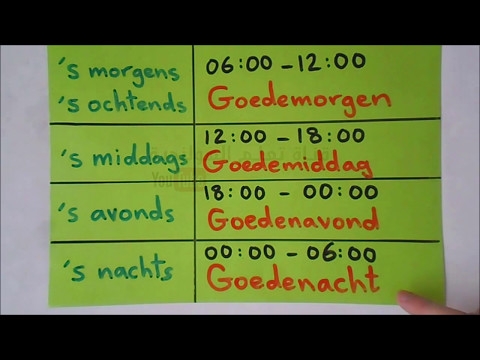 's morgens
's ochtends
06:00 - 12:00
Goedemorgen
's middags
12:00 - 18:00
Goedemiddag
's avonds
18:00 - 00:00
Goedenavond
's nachts
00:00 - 06:00
Goedenacht